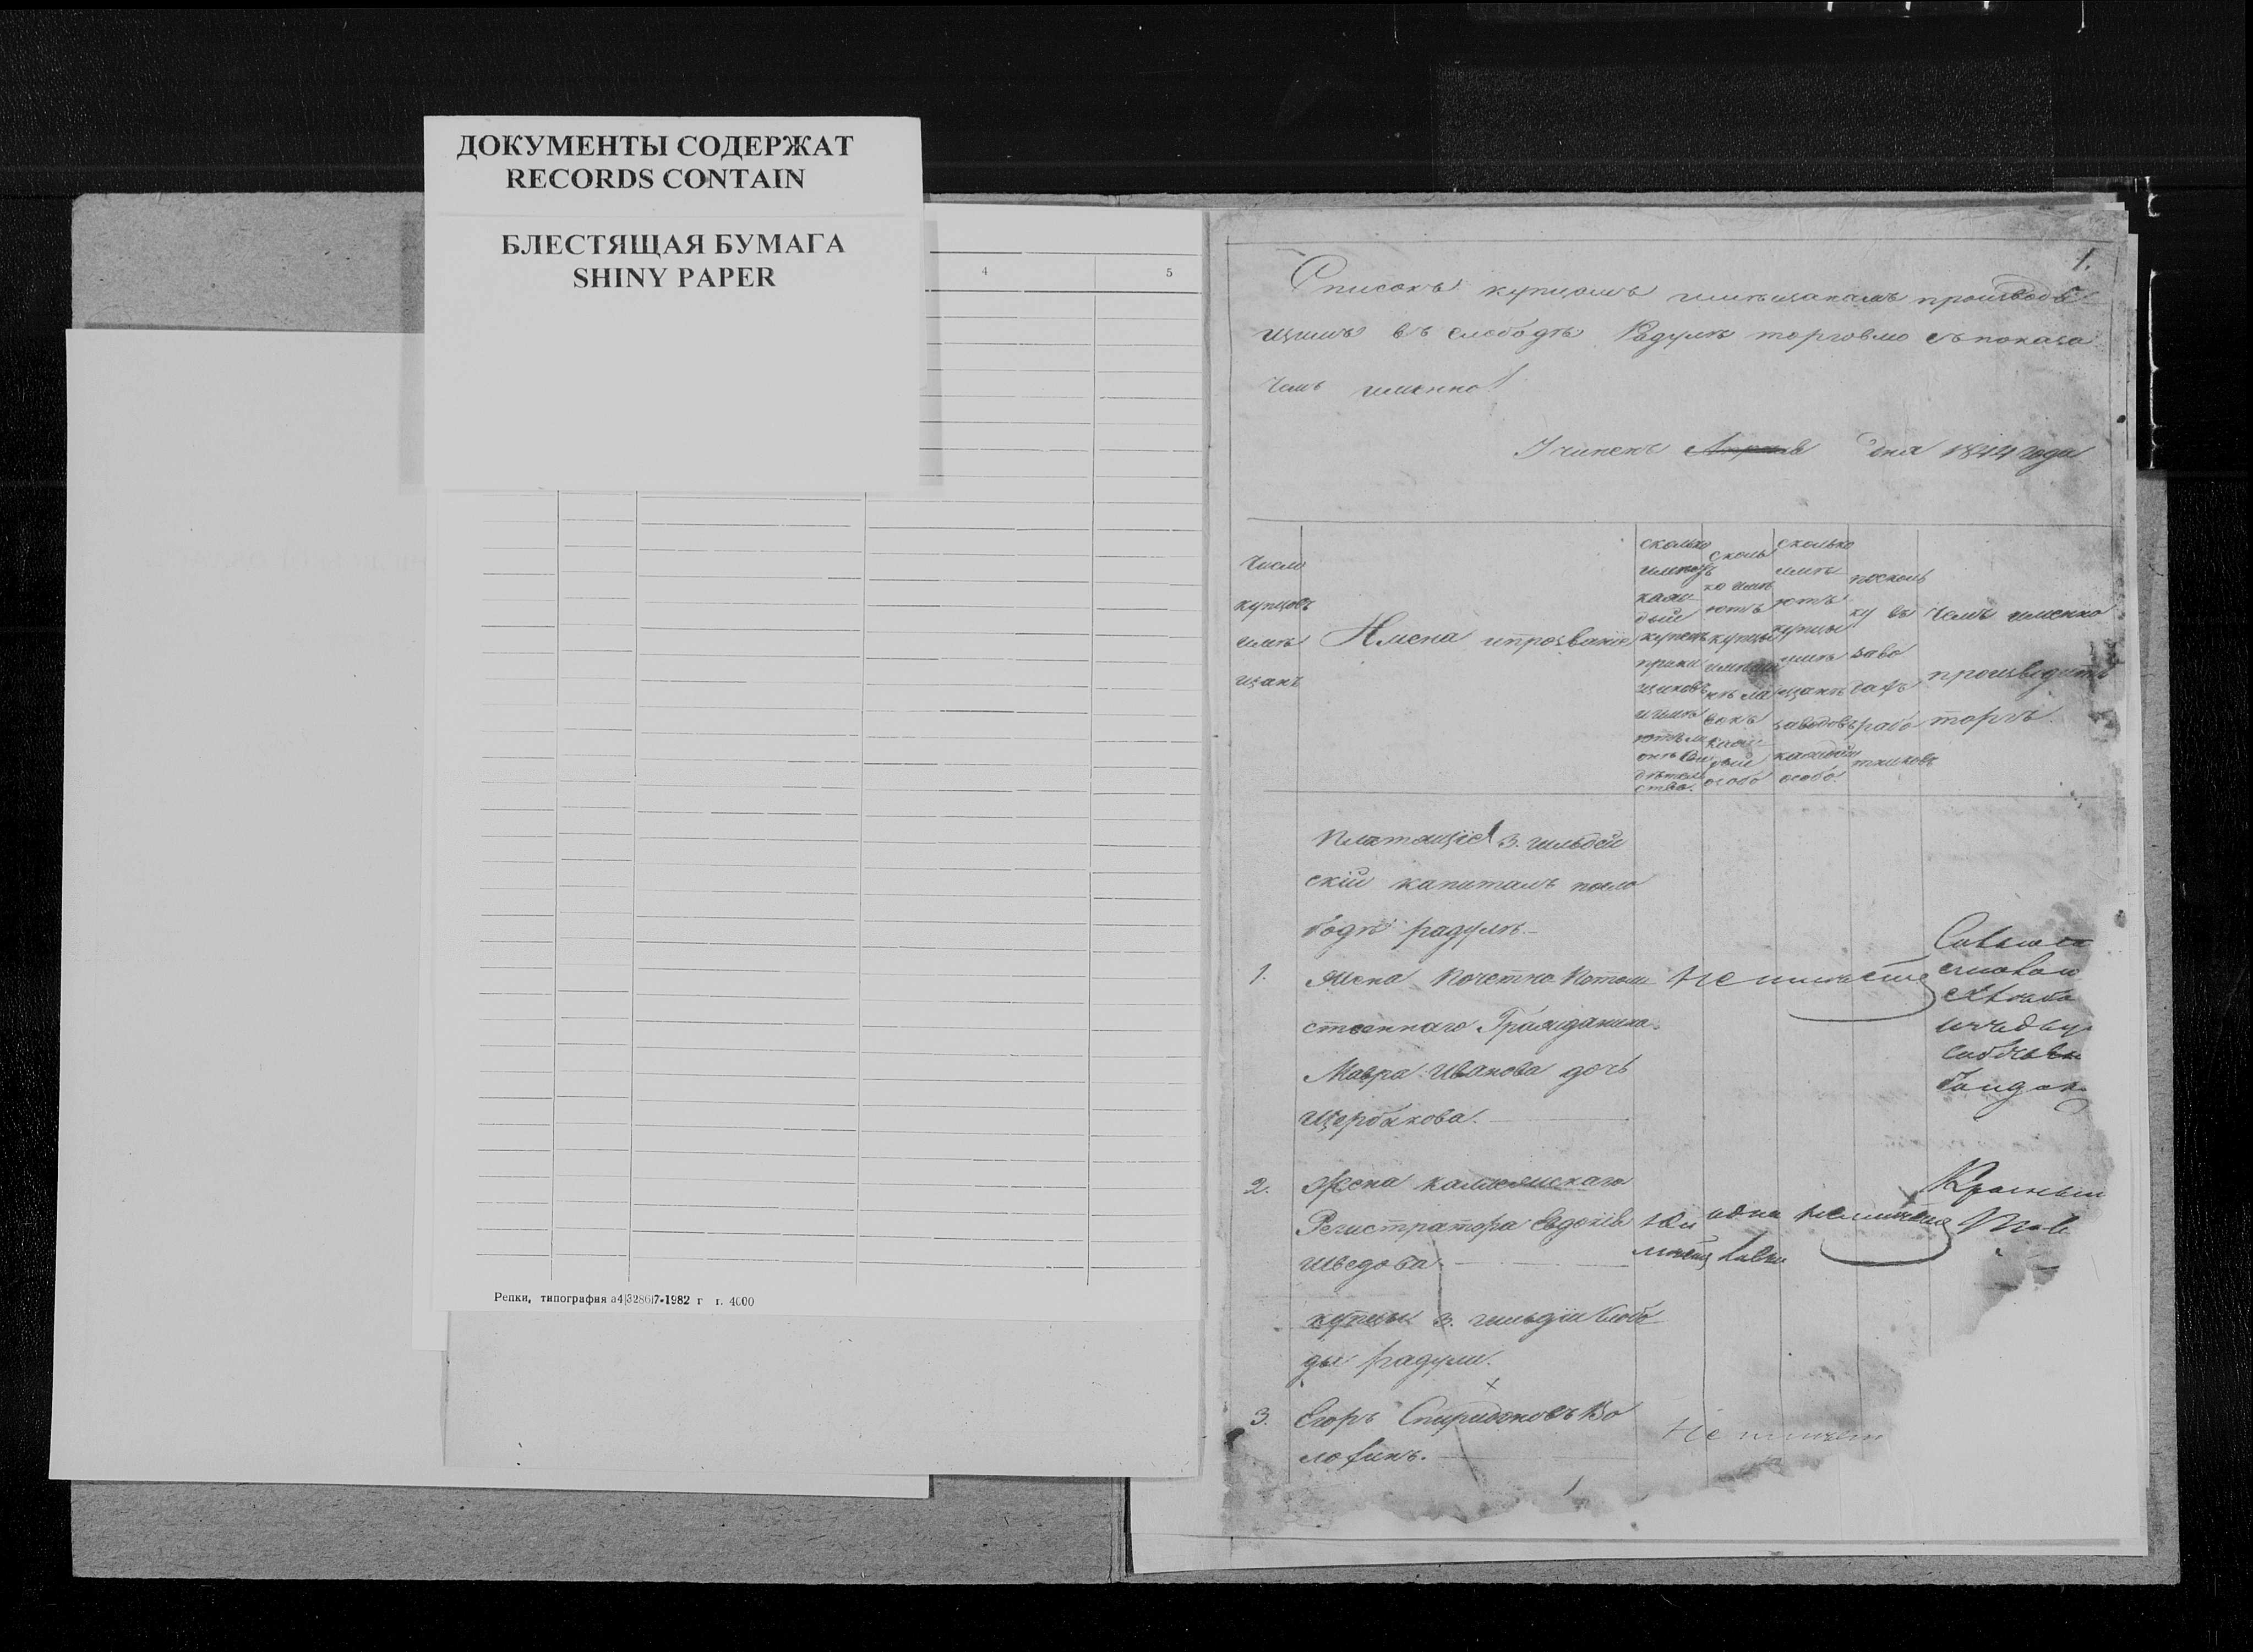 ДОКУМЕНТЫ СОДЕРЖАТ
RECORDS CONTAIN
БЛЕСТЯЩАЯ БУМАГА
SHINY PAPER
4 5
Репки, типография з4 1982 г т. 4000
1.
Списокъ купцамъ имѣщанамъ производя
щимъ въ слободѣ Радулѣ торговлю съ показа
чемъ именно
Учиненъ дня 1844 года
Число
купцовъ
имѣ
щанъ
Имена ипрозваніе
сколько
имѣетъ
каж
дый
купецъ
прика
щиковъ
иимѣ
ютъ ли
оныя сви
дѣтель
ства.
сколь
ко имѣ
ютъ
купцы
имѣща
нѣ ла
вокъ
каж
дый
особо
сколько
имѣ
ютъ
купцы
имѣ
щанѣ
заводовъ
каждый
особо.
посколь
ку въ
заво
дахъ
рабо
тниковъ
Чемъ именно
производитъ
торгъ.
Платящіе 3. гильдей
скій капиталъ посло
бодѣ радулѣ.
1. Жена Почетна Потом
ственнаго Гражданина
Мавра Иванова дочь
Щербакова.
Не имѣетъ
2. Жена
Регистратора Евдокія
Шведова.
Не и
мѣетъ
одна
лавка
не имѣетъ
Красным
Тов
купцы 3. гильдіи слобо
ды радули.
3. Егоръ Спиридоновъ Во
лофинъ.
Не имѣет